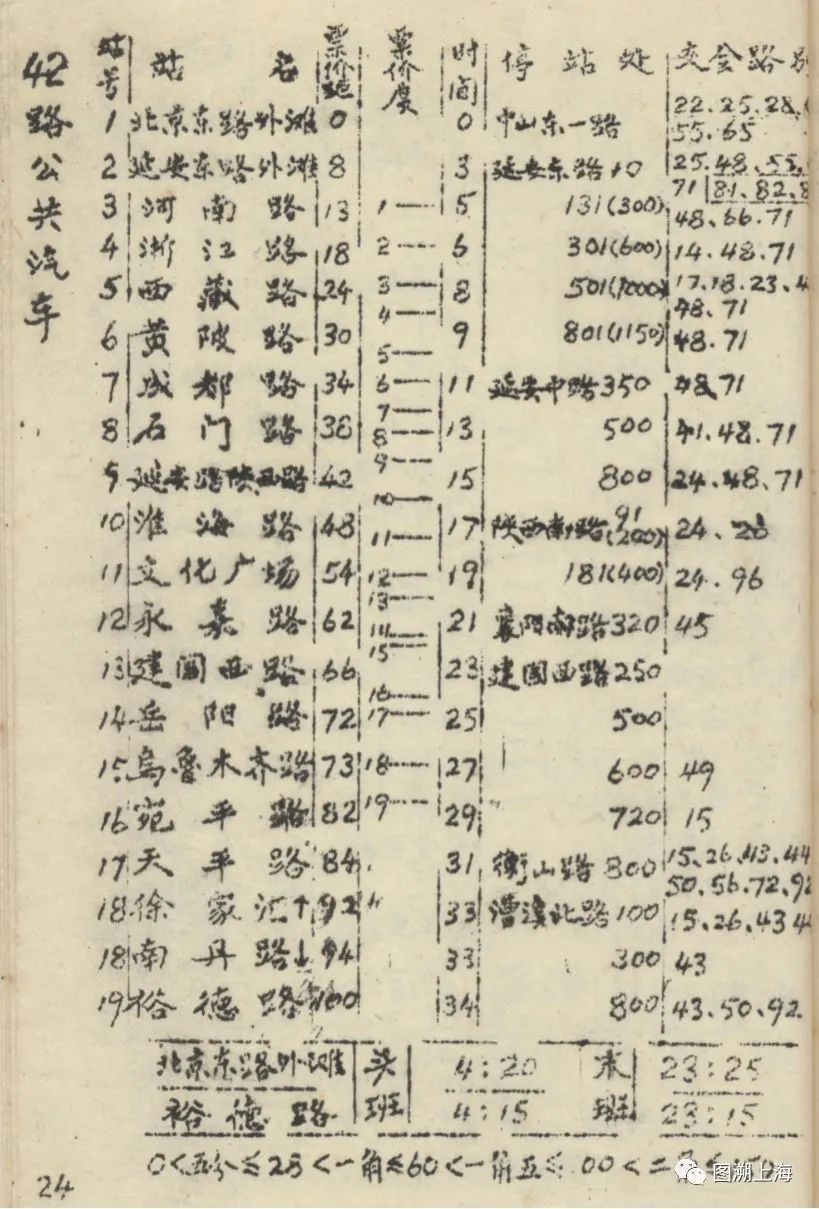 42路公共汽车
站号 站名 票价距 票价度 时间 停站处 交会路别
22.25.28.
1 北京东路外滩 0 0 中山东一路 55.65
2 延安东路外滩 8 3 延安东路10 25.48.55.
71 81.82.8
3 河南路 13 1— 5 131(300) 48.66.71
4 浙江路 18 2— 6 301(600) 14.48.71
5 西藏路 24 3— 8 501(1000) 17.18.23.4
4— 48.71
6 黄陂路 30 9 801(1150) 48.71
5—
7 成都路 34 6— 11 延安中路350 48.71
7—
8 石门路 38 8— 13 500 41.48.71
9—
9 延安路陕西路 42 15 800 24.48.71
10—
10 淮海路 48 11— 17 陕西南路91(200) 24.26
11 文化广场 54 12— 19 181(400) 24.96
13—
12 永嘉路 62 14— 21 襄阳南路320 45
15—
13 建国西路 66 23 建国西路250
16—
14 岳阳路 72 17— 25 500
15 乌鲁木齐路 73 18— 27 600 49
16 宛平路 82 19— 29 720 15
17 天平路 84 31 衡山路800 15.26.43.44
50.56.72.92
18 徐家汇↑ 92 33 漕溪北路100 15.26.43.44
18 南丹路↓ 94 33 300 43
19 裕德路 100 34 800 43.50.92
北京东路外滩 头班 4:20 末班 23:25
裕德路 4:15 23:15
0<五分≤28<一角≤60<一角五≤ 00<二角≤
24
图溯上海